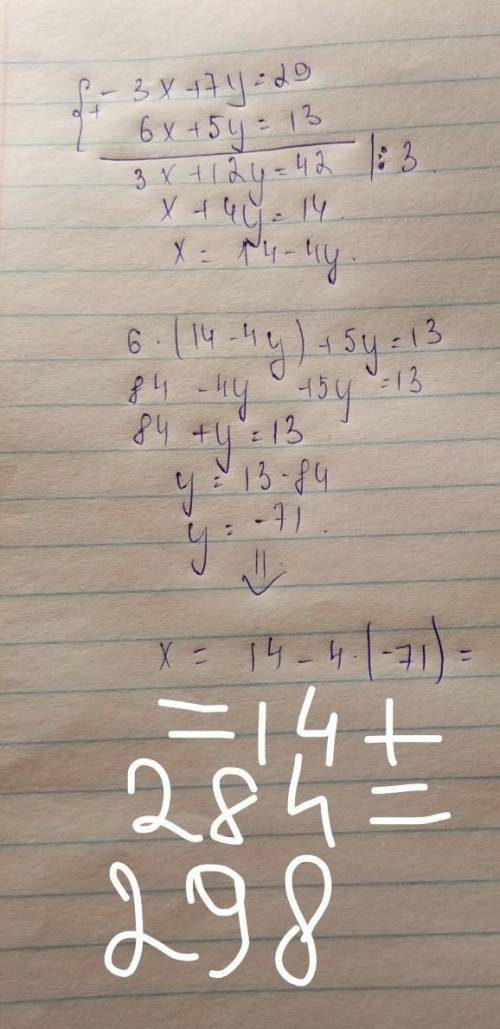 {+ - 3x + 7y = 29
6x + 5y = 13
3x + 12y = 42 |: 3.
x + 4y = 14.
x = 14 - 4y.
6 · (14 - 4y) + 5y = 13
84 - 4y + 5y = 13
84 + y = 13
y = 13 - 84
y = -71.
x = 14 - 4 · (-71) =
= 14 +
284 =
298